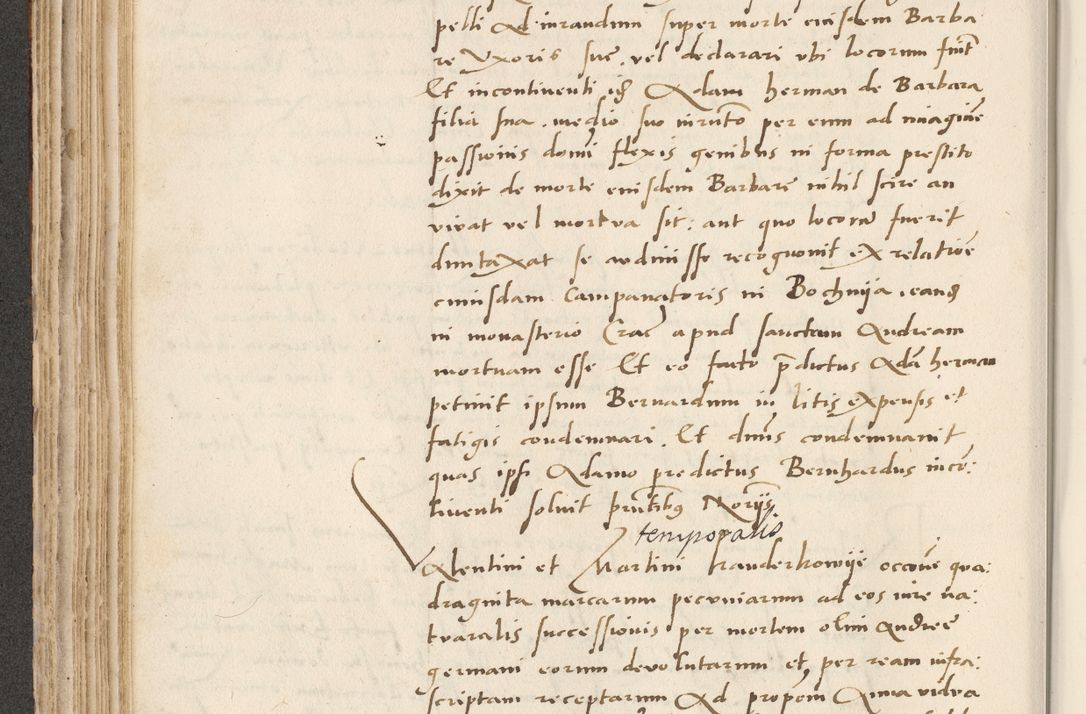 pelli Ad iurandum super morte eiusdem Barba
re Uxoris sue, vel declarari ubi locorum fuit
Et incontinenti idem Adam herman de Barbara
filia sua, medio suo iuramento per eum ad imaginem
passionis domini flexis genibus in forma prestito
dixit de morte eiusdem Barbare nihil scire an
vivat vel mortva sit: aut quo locorum fuerit
duntaxat se audivisse recognovit ex relatione
cuiusdam Campanatoris in Bochnija, eandem
in monasterio Crac apud sanctum Andream
mortuam esse Et eo facto predictus Adam herman
petivit ipsum Bernardum in litis expensis et
fatigis condemnari. Et dominus condemnavit
quas ipsi Adamo predictus Bernhardus incon:
tinenti solvit presentibus Notariis
temporalis
Valentini et Martini handerkowije occasione qua:
draginta marcarum pecuniarum ad eos iure na:
tvaralis successionis per mortem olim Andree
germani eorum devolutarum et per ream infra:
scriptam receptarum Ad propositionem Anna vidva